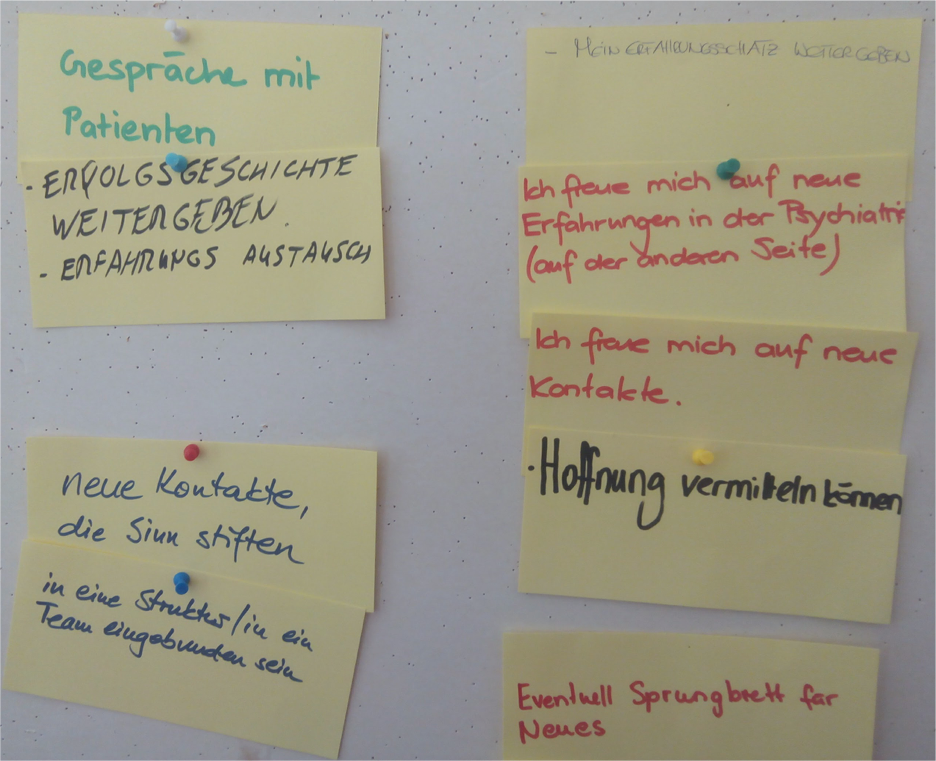 Gespräche mit
Patienten
· ERFOLGSGESCHICHTE
WEITERGEBEN.
- ERFAHRUNGS AUSTAUSCH
neue Kontakte,
die Sinn stiften
in eine Struktur/in ein
Team eingebunden sein
- MEIN ERFAHRUNGSSCHATZ WEITERGEBEN
Ich freue mich auf neue
Erfahrungen in der Psychiatrie
(auf der anderen Seite)
Ich freue mich auf neue
Kontakte.
· Hoffnung vermitteln können
Eventuell Sprungbrett für
Neues